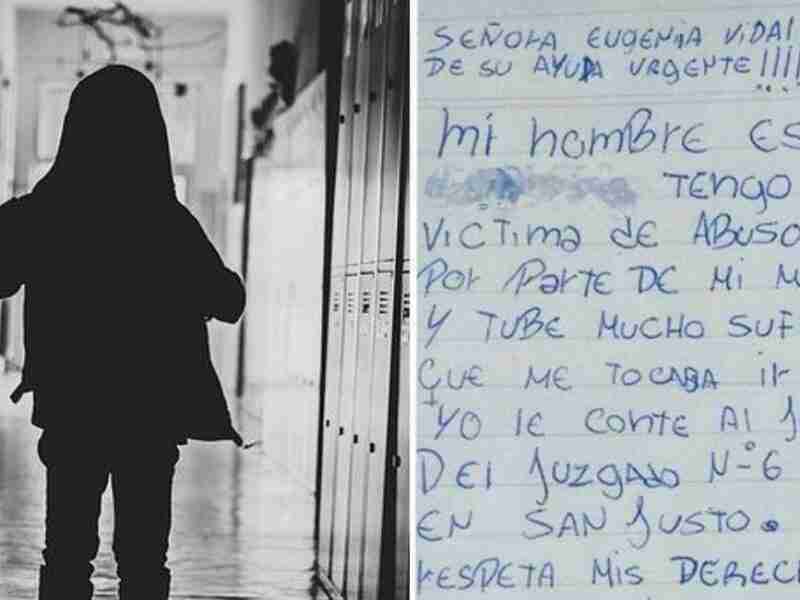 SEÑORA EUGENIA VIDAL
DE SU AYUDA URGENTE!!!!
mi nomBRE ES
TENGO
VICTIMA de ABUSO
POR PARTE DE MI M
Y TUBE MUCHO SUF
QUE ME TOCABA ir
YO le CONTE Al J
DEl JUZGADO N-º6
EN SAN JUSTO.
RESPETA MIS DEREC